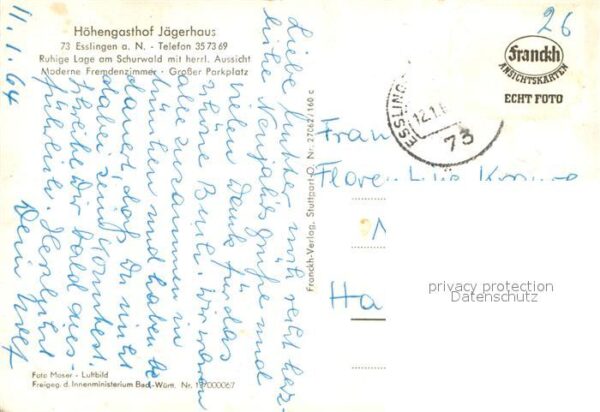 Höhengasthof Jägerhaus
73 Esslingen a. N. - Telefon 35 73 69
Ruhige Lage am Schurwald mit herrl. Aussicht
Moderne Fremdenzimmer · Großer Parkplatz
11. 1. 64
Liebe Mutter mit recht herz-
liche Neujahrs Grüße und
vielen Dank für das
schöne Buch. Wir waren
alle zusammen in
und haben be-
dauert, daß Du nicht
dabei sein konntest.
Schreibe Dir bald aus-
führlich. Herzlichst
Dein
Foto Moser - Luftbild
Freigeg. d. Innenministerium Bad.-Württ. Nr. 1/7000067
Franckh-Verlag, Stuttgart-O, Nr. 27062/160 c
26
Franckh
ANSICHTSKARTEN
ECHT FOTO
ESSLING
12.1.6
73
Frau
Ha
privacy protection
Datenschutz